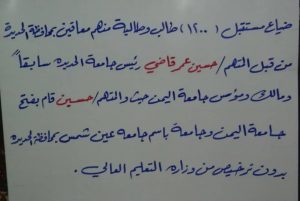 ضياع مستقبل (١٢٠٠) طالب وطالبة منهم معاقين بمحافظة الحديدة
من قبل المتهم/ حسين عمر قاضي رئيس جامعة الحديده سابقاً
ومالك ومؤسس جامعة اليمن حيث والمتهم/ حسين قام بفتح
جامعة اليمن وجامعة باسم جامعه عين شمس بمحافظة الحديدة
بدون ترخيص من وزاره التعليم العالي.